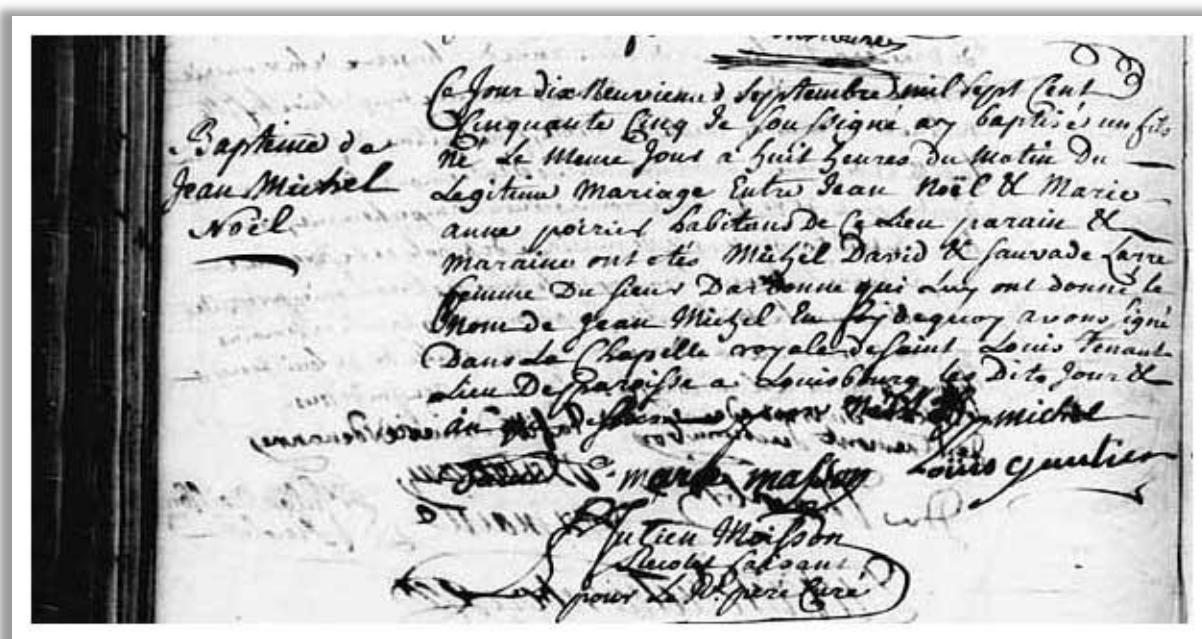 Baptême de
Jean Michel
Noël
Ce Jour dix Neuvieme Septembre mil Sept Cent
Cinquante Cinq Je Soussigné ay baptisé un fils
né Le Meme Jour a huit heures Du Matin Du
Legitime Mariage Entre Jean Noël & Marie
anne poirier habitans De Ce Lieu parain &
maraine ont étés Michel David & Sauvade Larre
femme Du Sieur Darbonne qui Luy ont donné le
Nom de Jean Michel En foy dequoy avons signé
Dans La Chapelle royalle de Saint Louis Tenant
Lieu De paroisse a Louisbourg les Dits Jour &
an
michel
marie masson
Louis gautier
Julien Moisson
faisant
pour Le Rd. père Curé